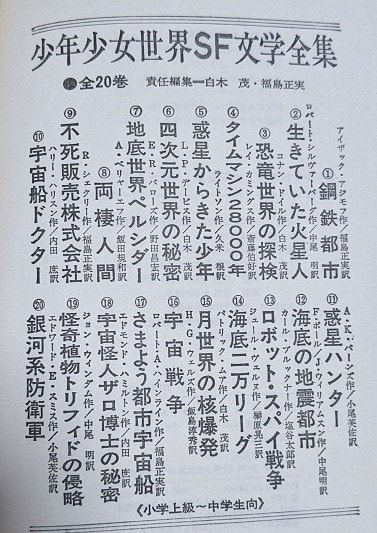 少年少女世界SF文学全集
全20巻 責任編集━白木 茂・福島正実
アイザック・アシモフ作/福島正実訳
①鋼鉄都市
ロバート・シルヴァーバーグ作/中尾 明訳
②生きていた火星人
コナン・ドイル作/白木 茂訳
③恐竜世界の探検
レイ・カミングス作/斎藤伯好訳
④タイムマシン28000年
ライトソン作/久米 穣訳
⑤惑星からきた少年
L・P・デービス作/白木 茂訳
⑥四次元世界の秘密
E・R・バローズ作/野田昌宏訳
⑦地底世界ペルシダー
A・ベリャーエフ作/飯田規和訳
⑧両棲人間
R・シェクリー作/福島正実訳
⑨不死販売株式会社
ハリー・ハリスン作/内田 庶訳
⑩宇宙船ドクター
A・K・バーンズ作/小尾芙佐訳
⑪惑星ハンター
F・ポール/J・ウィリアムスン作/中尾明訳
⑫海底の地震都市
カール・ブルックナー作/塩谷太郎訳
⑬ロボット・スパイ戦争
ジュール・ヴェルヌ作/榊原晃三訳
⑭海底二万リーグ
パトリック・ムーア作/白木 茂訳
⑮月世界の核爆発
H・G・ウェルズ作/飯島淳秀訳
⑯宇宙戦争
ロバート・A・ハインライン作/福島正実訳
⑰さまよう都市宇宙船
エドモンド・ハミルトン作/内田 庶訳
⑱宇宙怪人ザロ博士の秘密
ジョン・ウィンダム作/中尾 明訳
⑲怪奇植物トリフィドの侵略
エドワード・E・スミス作/小尾芙佐訳
⑳銀河系防衛軍
《小学上級〜中学生向》